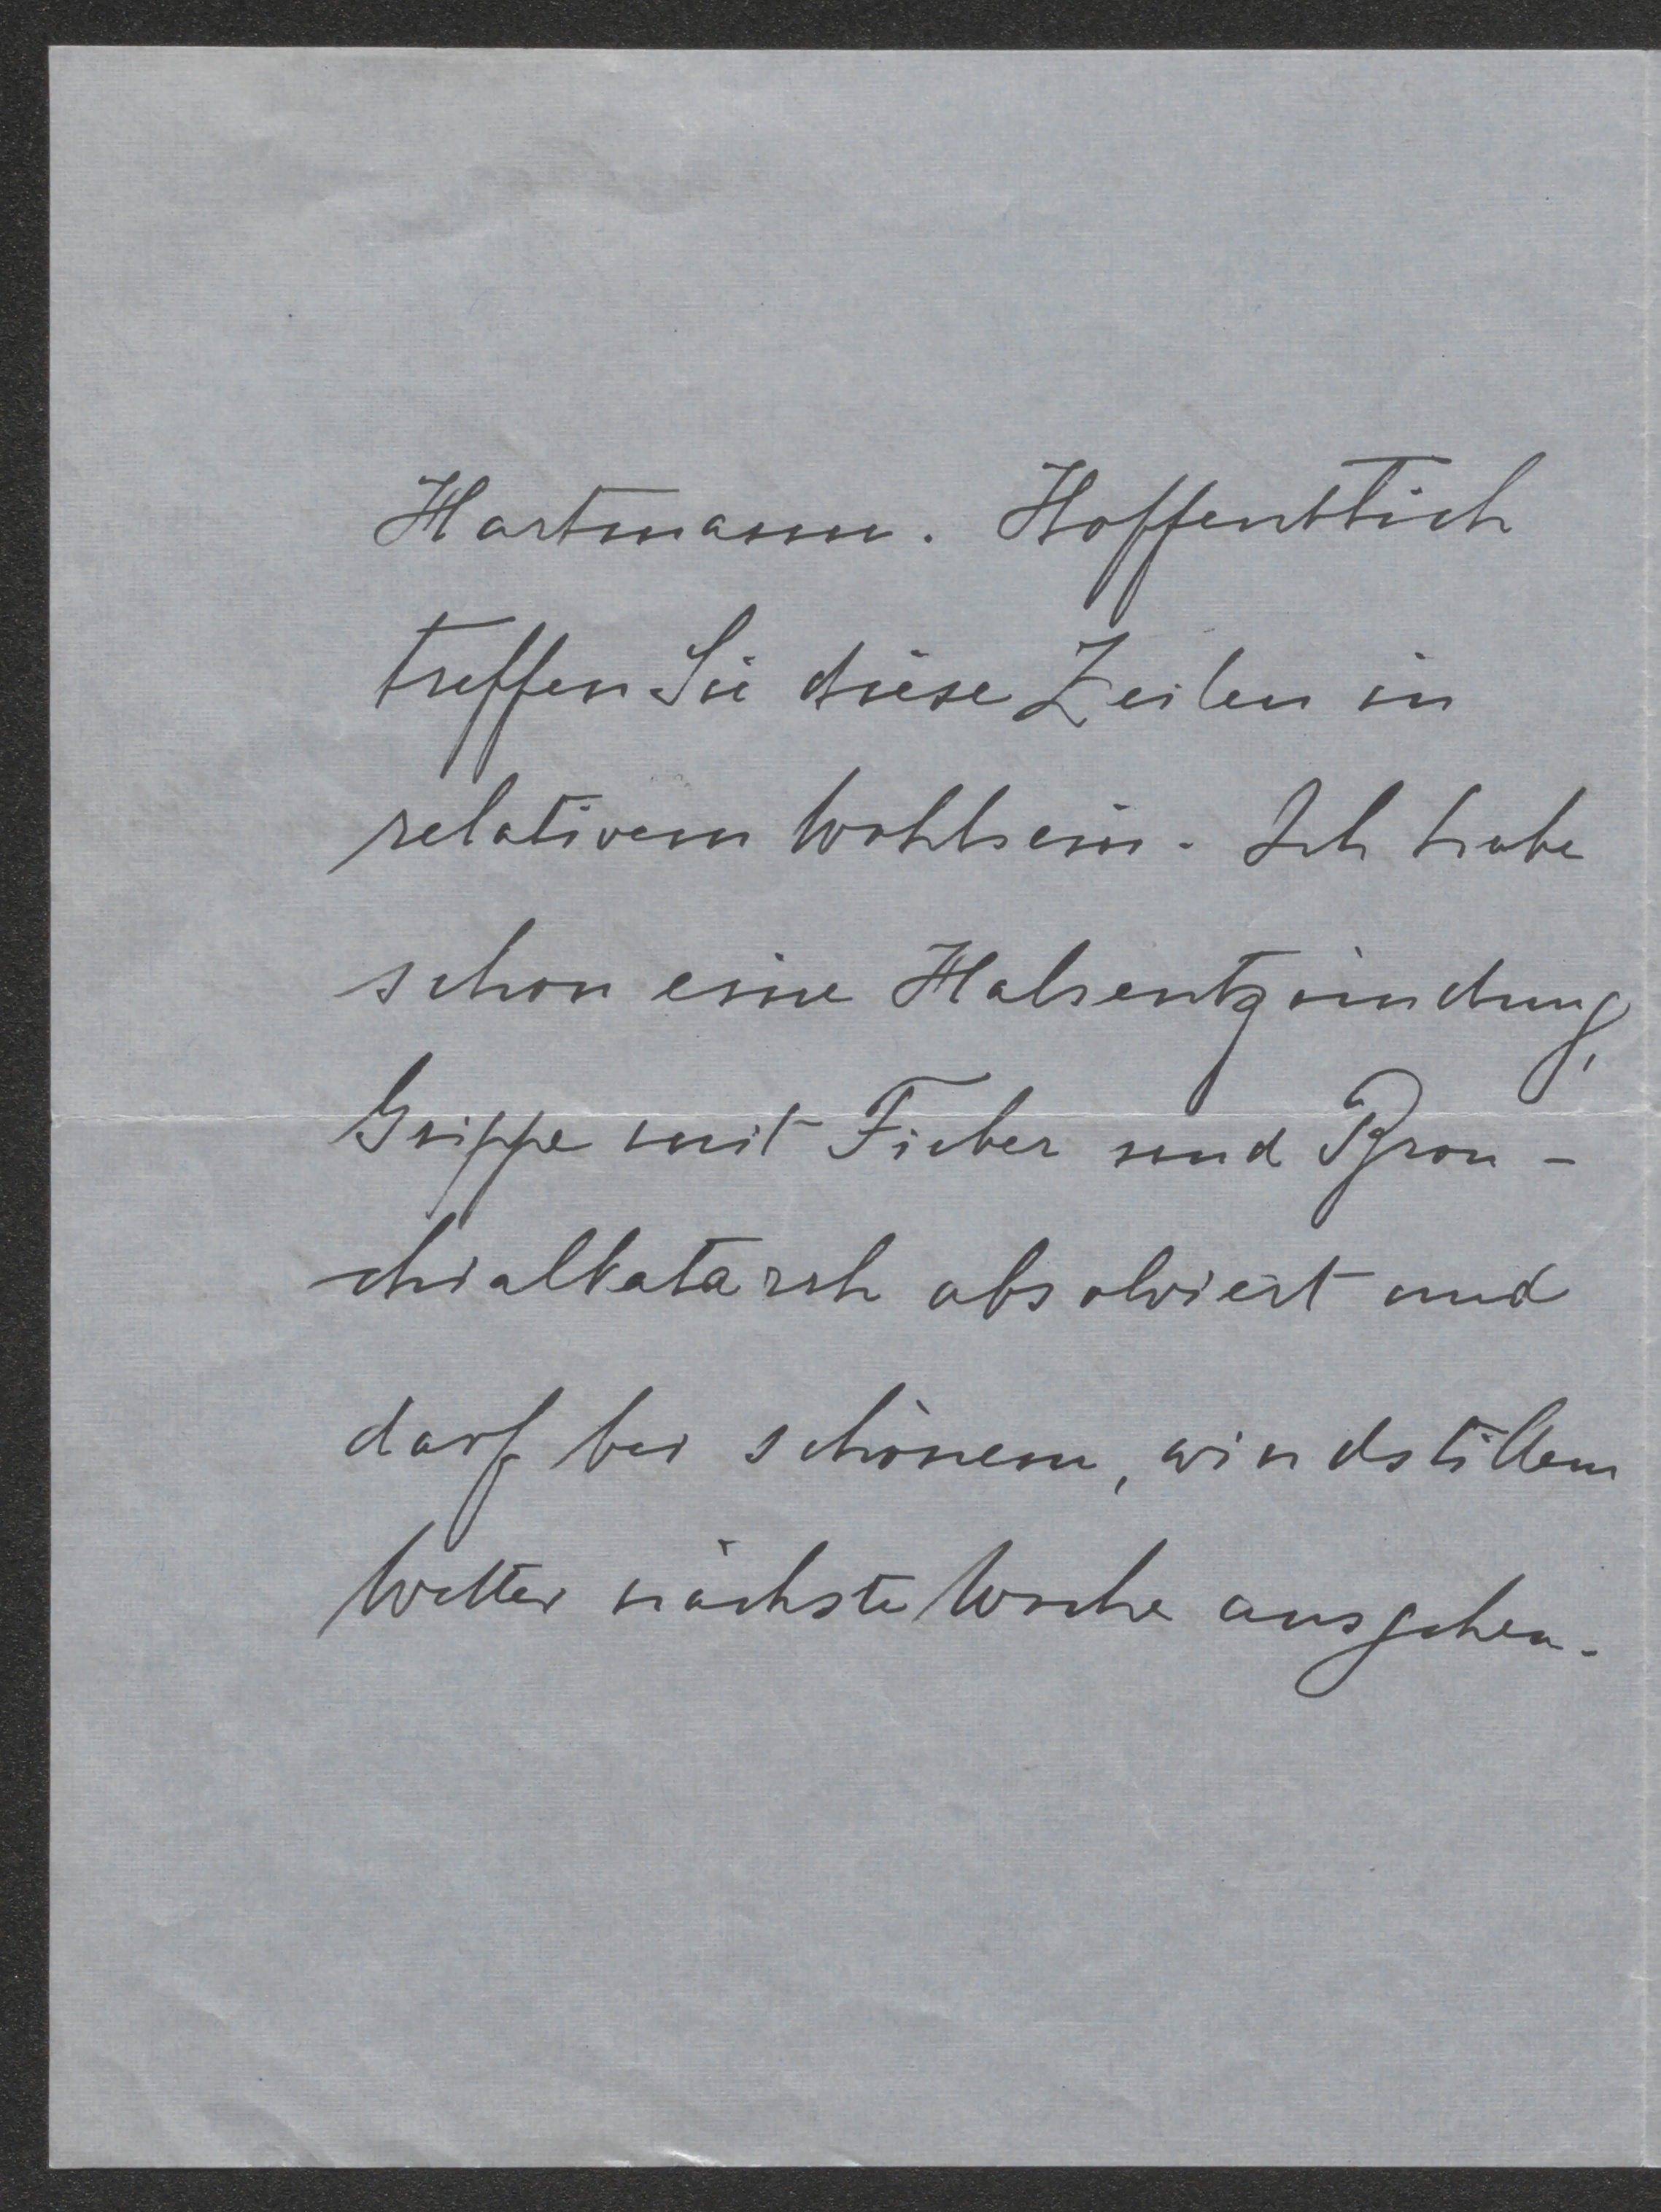 Hartmann. Hoffentlich
treffen Sie diese Zeilen in
relativem Wohlsein. Ich habe
schon eine Halsentzündung,
Grippe mit Fieber und Bron-
chialkatarrh absolviert und
darf bei schönem, windstillem
Wetter nächste Woche ausgehen.